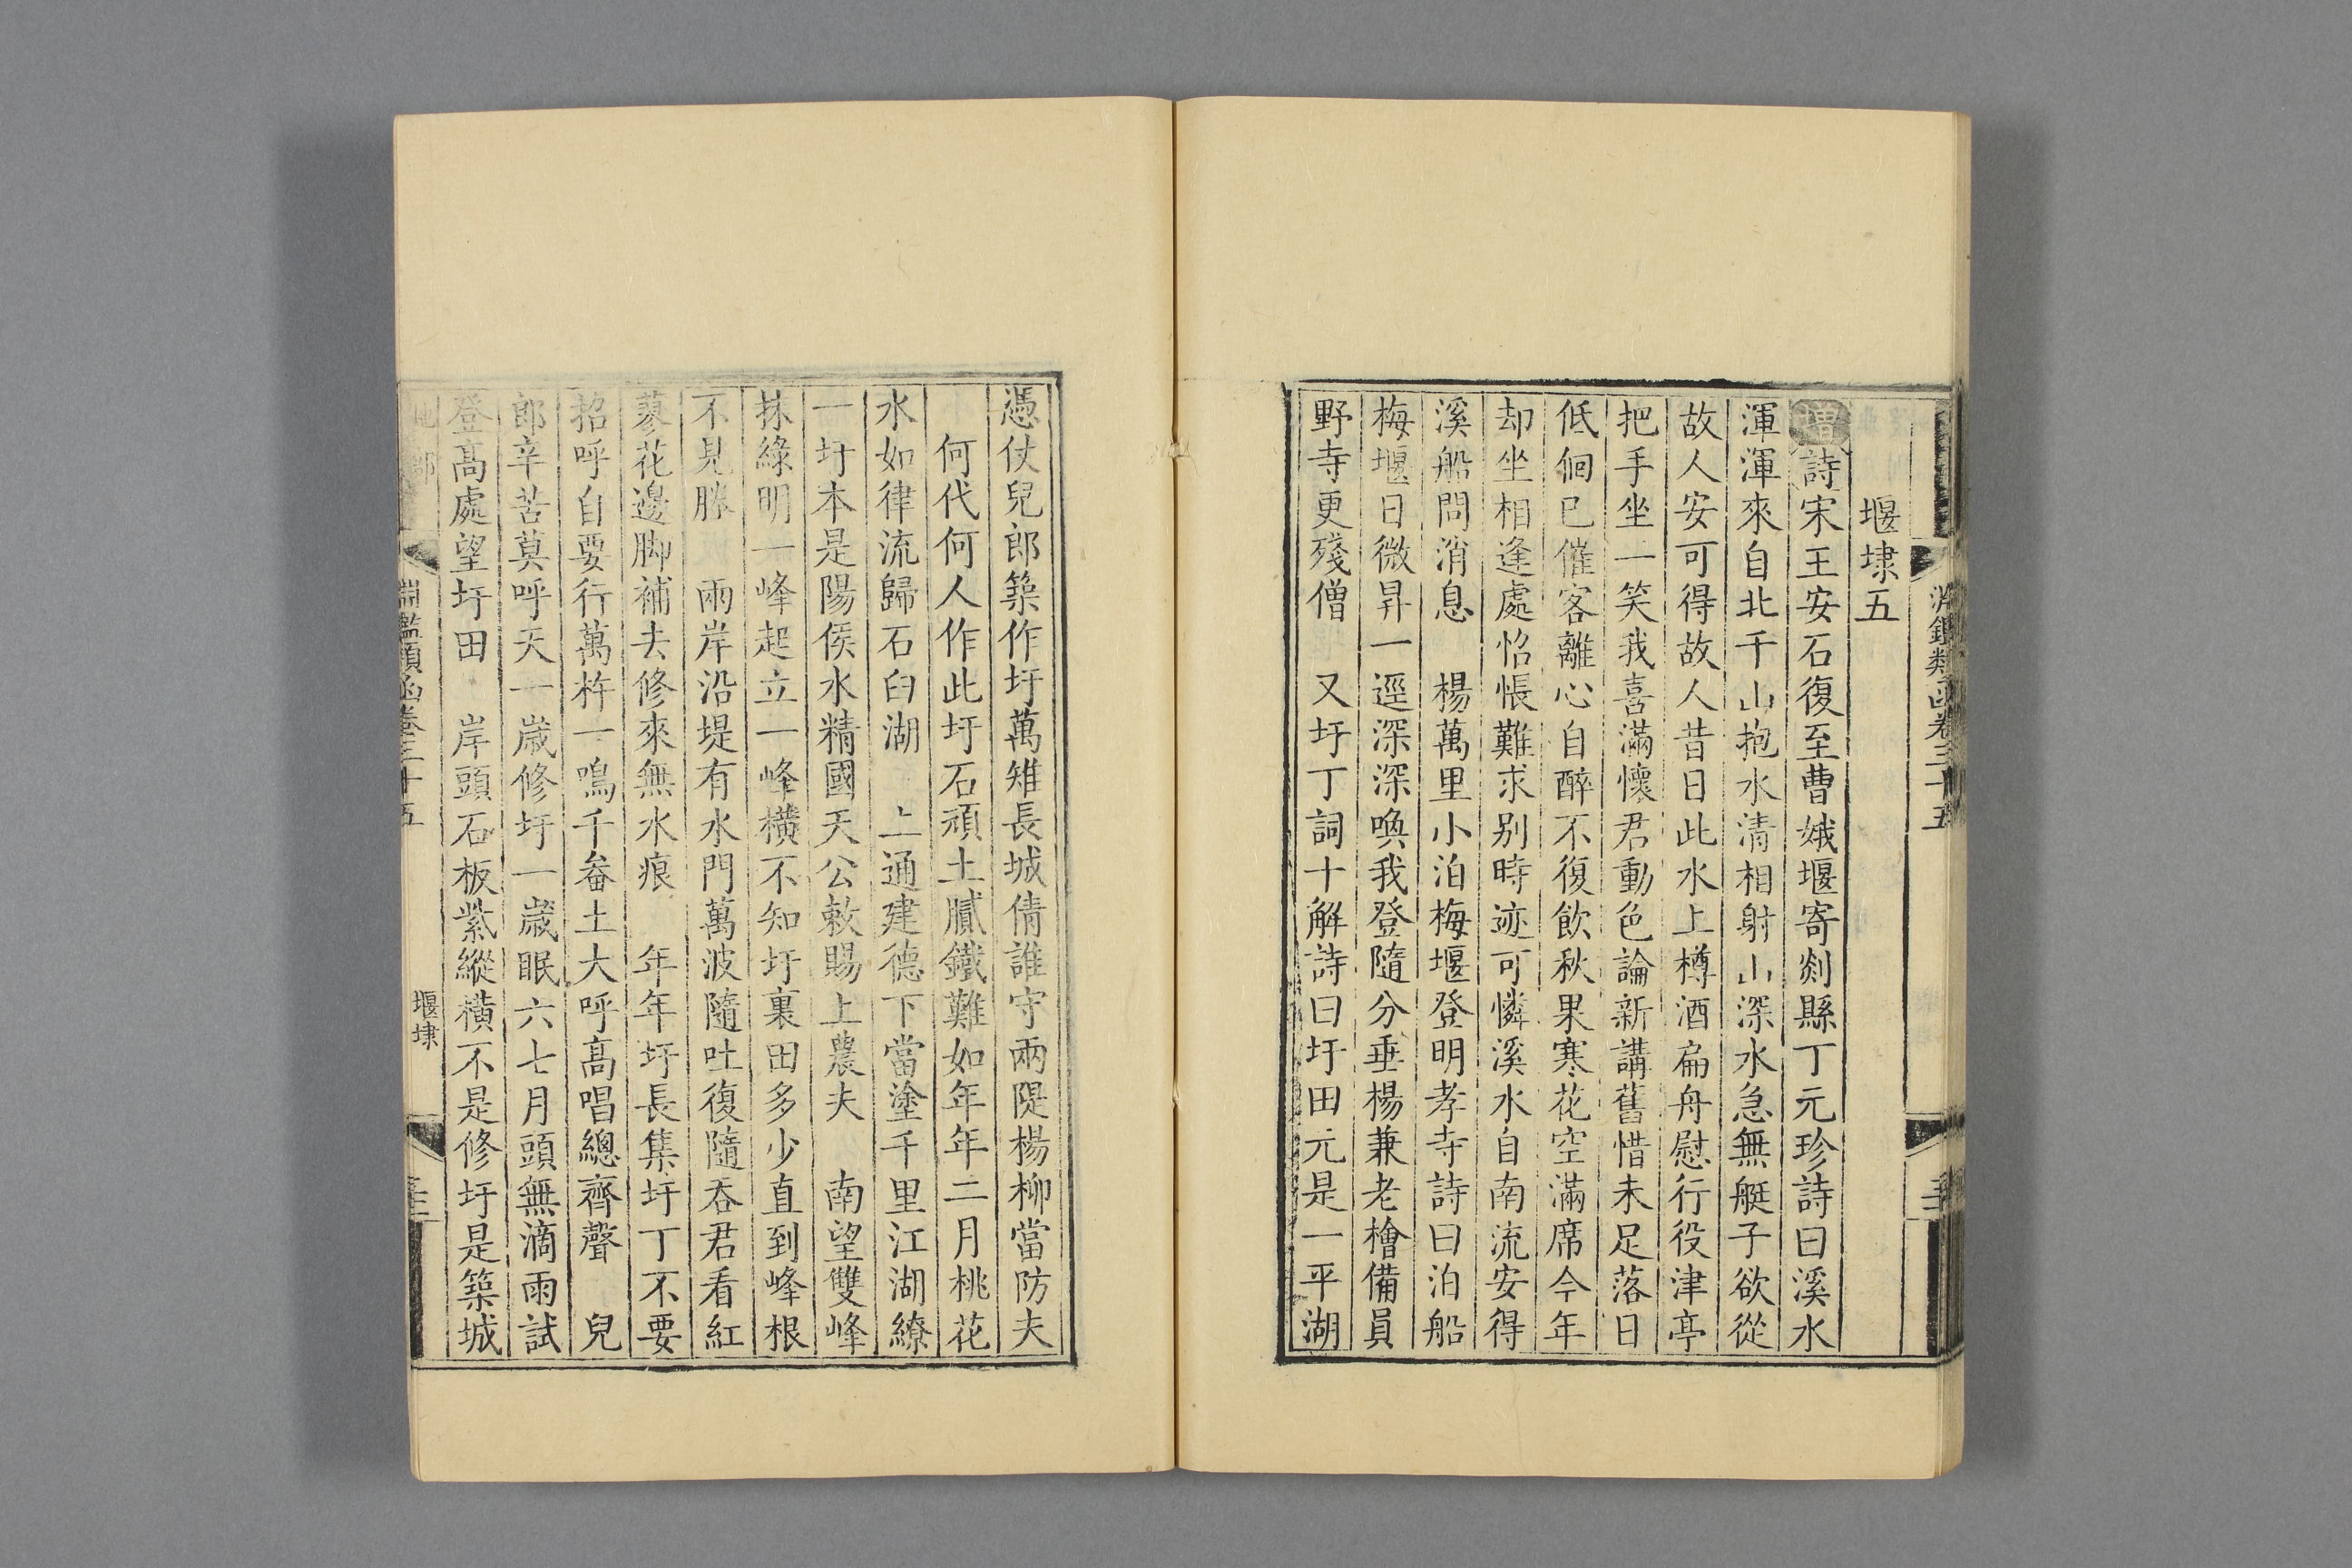 淵鑑類函卷三十五
堰埭五
增詩宋王安石復至曹娥堰寄剡縣丁元珍詩曰溪水
渾渾來自北千山抱水清相射山深水急無艇子欲從
故人安可得故人昔日此水上樽酒扁舟慰行役津亭
把手坐一笑我喜滿懷君動色論新講舊惜未足落日
低徊已催客離心自醉不復飲秋果寒花空滿席今年
却坐相逢處怊悵難求别時迹可憐溪水自南流安得
溪船問消息　楊萬里小泊梅堰登明孝寺詩曰泊船
梅堰日微昇一逕深深喚我登隨分垂楊兼老檜備員
野寺更殘僧　又圩丁詞十解詩曰圩田元是一平湖
憑仗兒郎築作圩萬雉長城倩誰守兩隄楊柳當防夫
何代何人作此圩石頑土膩鐵難如年年二月桃花
水如律流歸石臼湖　上通建德下當塗千里江湖繚
一圩本是陽侯水精國天公敕賜上農夫　南望雙峰
抹綠明一峰起立一峰橫不知圩裏田多少直到峰根
不見塍　兩岸沿堤有水門萬波隨吐復隨吞君看紅
蓼花邊脚補去修來無水痕　年年圩長集圩丁不要
招呼自要行萬杵一鳴千畚土大呼高唱總齊聲　兒
郎辛苦莫呼天一歲修圩一歲眠六七月頭無滴雨試
登高處望圩田　岸頭石板紫縱橫不是修圩是築城
地部
淵鑑類函卷三十五
堰埭